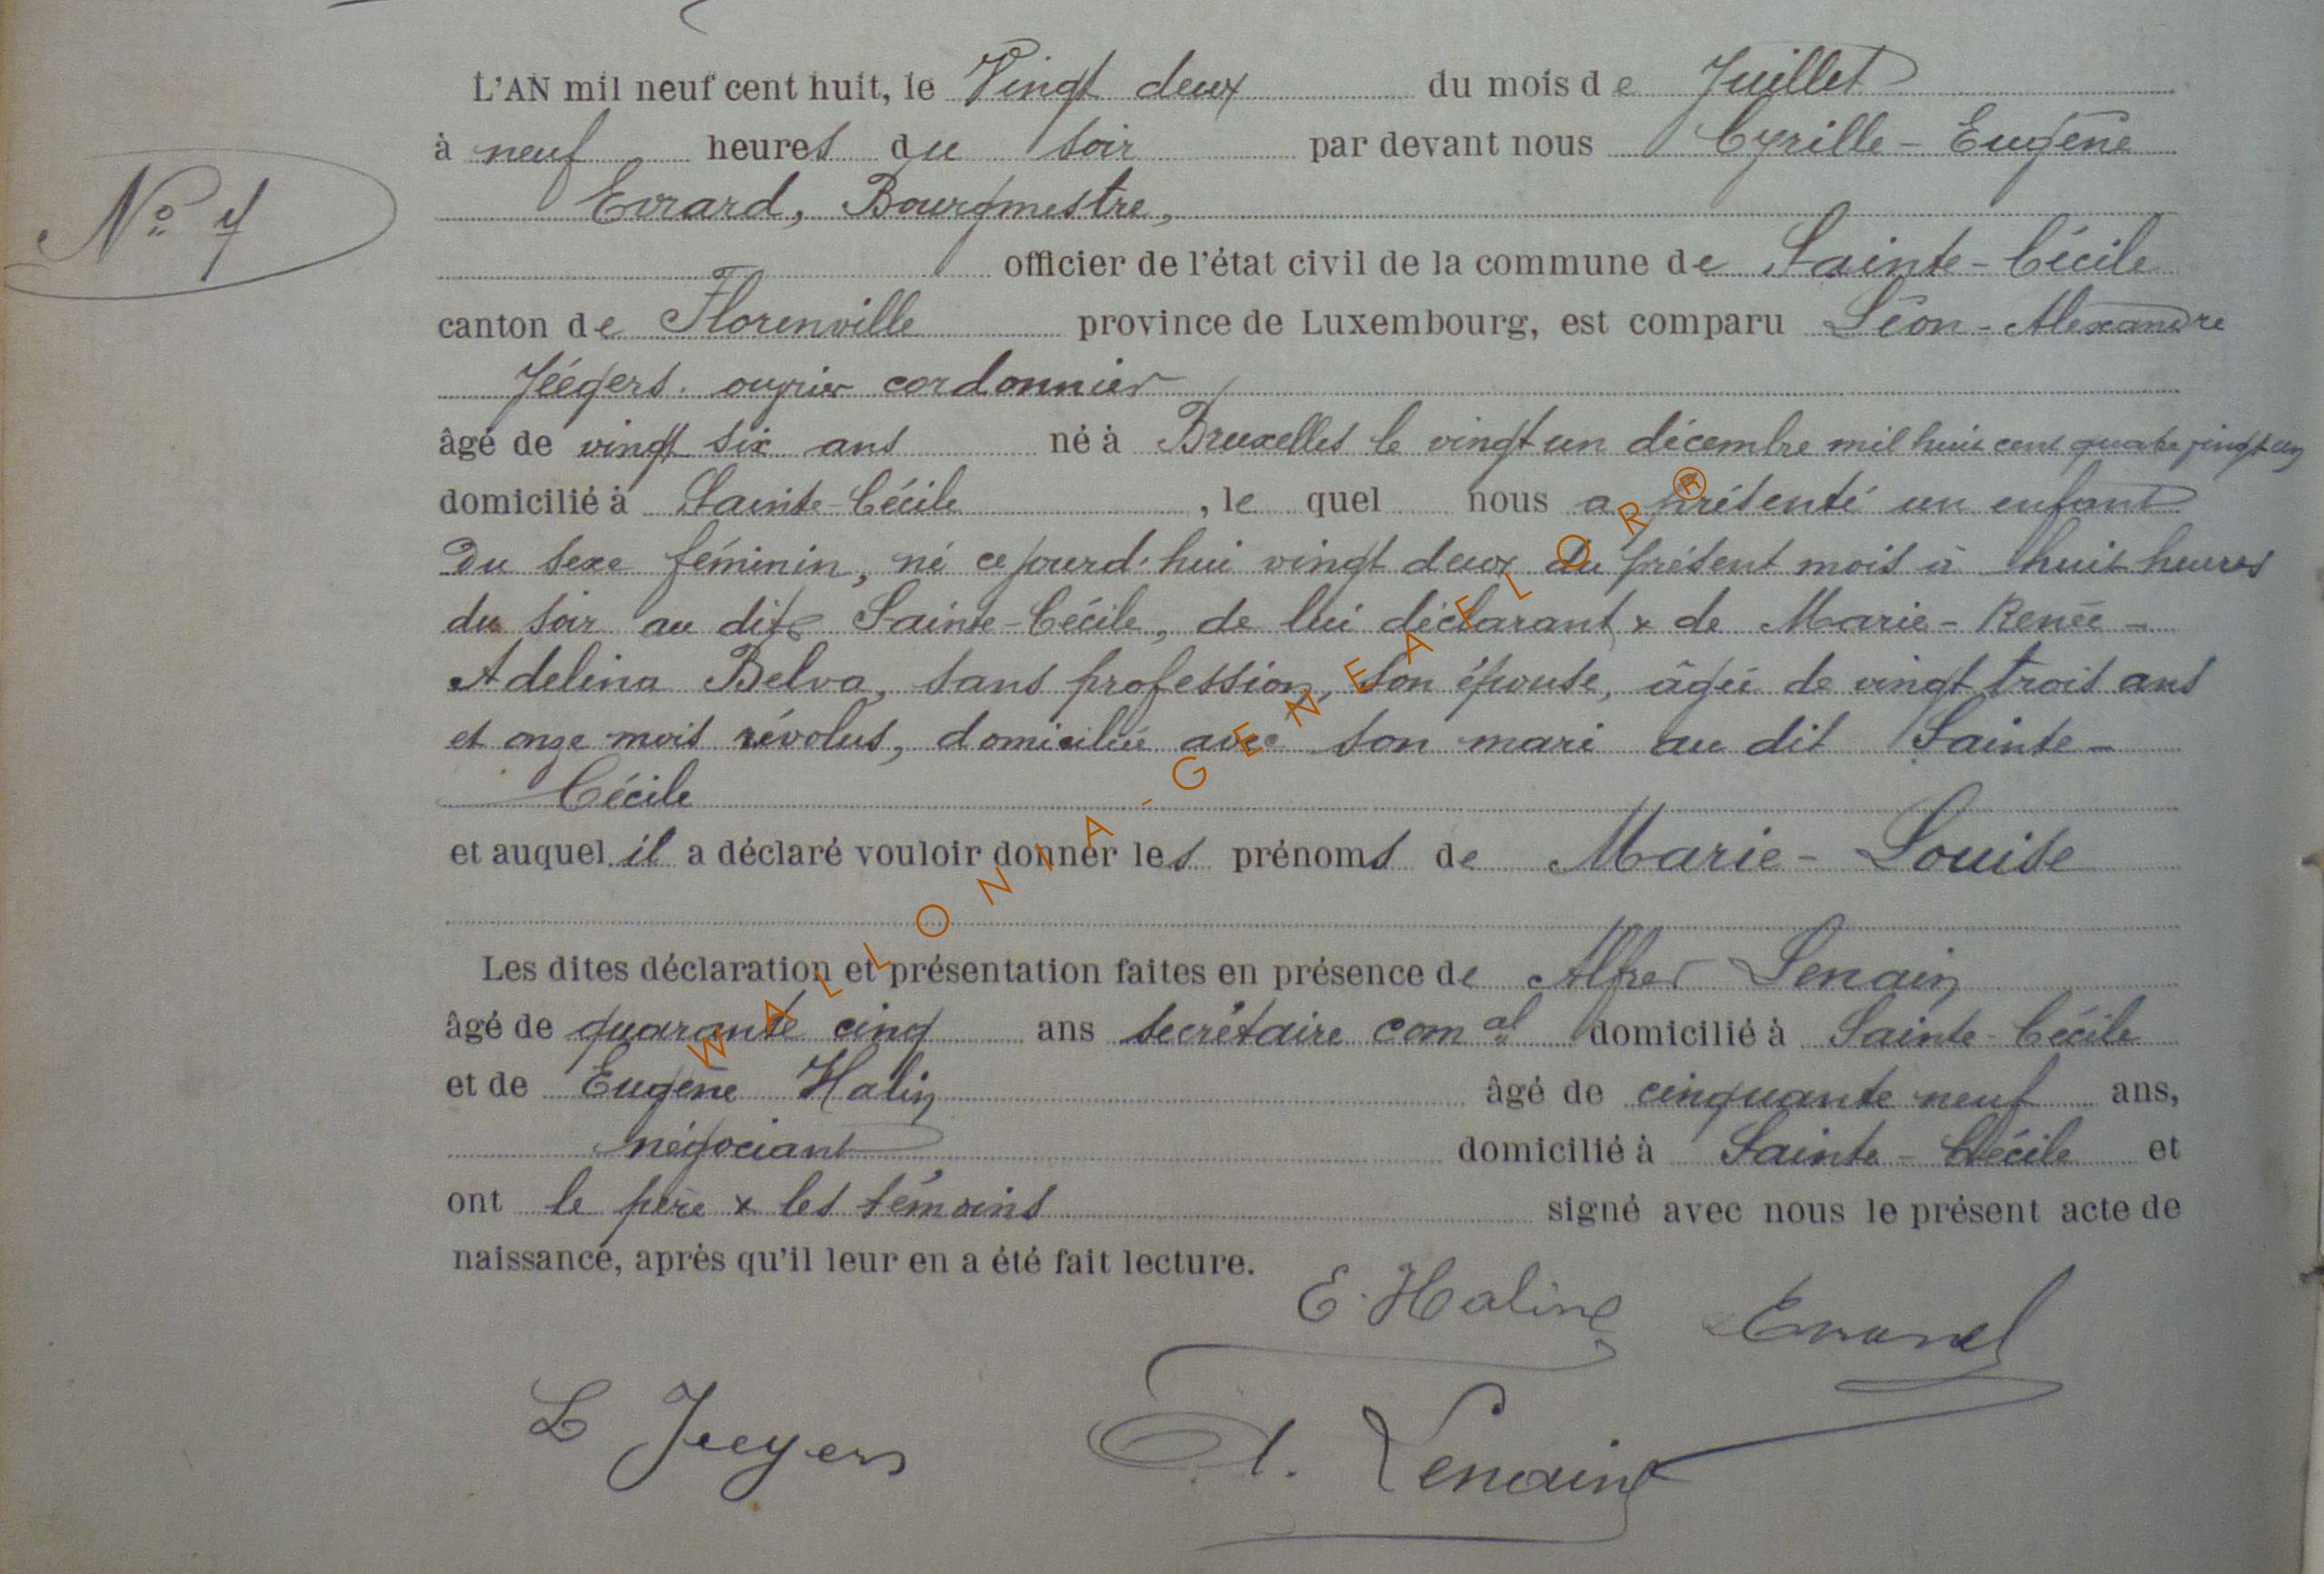 L'AN mil neuf cent huit, le Vingt deux du mois de Juillet
à neuf heures du soir par devant nous Cyrille-Eugène
Evrard, Bourgmestre,
N° 7
officier de l'état civil de la commune de Sainte-Cécile
canton de Florenville province de Luxembourg, est comparu Léon-Alexandre
Jéégers ouvrier cordonnier
âgé de vingt six ans né à Bruxelles le vingt un décembre mil huit cent quatre vingt un
domicilié à Sainte-Cécile, le quel nous a présenté un enfant
Du sexe féminin, né ce jourd'hui vingt deux du présent mois à huit heures
du soir au dit Sainte-Cécile, de lui déclarant & de Marie-Renée-
Adelina Belva, sans profession, son épouse, âgée de vingt trois ans
et onze mois révolus, domiciliée avec son mari au dit Sainte-
Cécile
et auquel il a déclaré vouloir donner les prénoms de Marie-Louise
Les dites déclaration et présentation faites en présence de Alfred Lenain
âgé de quarante cinq ans secrétaire comal domicilié à Sainte-Cécile
et de Eugène Halin âgé de cinquante neuf ans,
négociant, domicilié à Sainte-Cécile et
ont le père & les témoins signé avec nous le présent acte de
naissance, après qu'il leur en a été fait lecture.
E. Halin Evrard
L Jeegers A. Lenain
WALLONIA-GENEAFLOR®